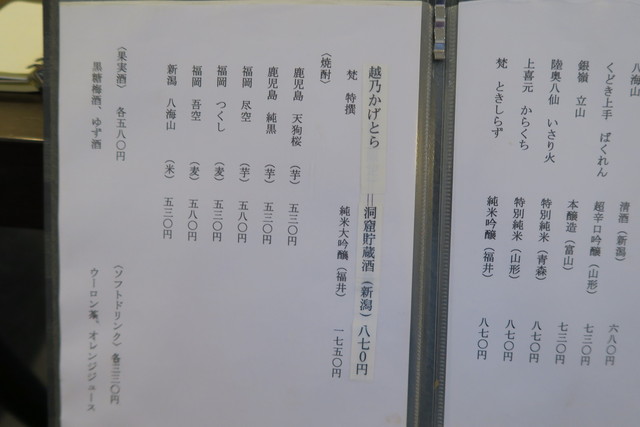 八海山 清酒（新潟） 六八〇円
くどき上手 ばくれん 超辛口吟醸（山形） 七三〇円
銀嶺 立山 本醸造（富山） 七三〇円
陸奥八仙 いさり火 特別純米（青森） 八七〇円
上喜元 からくち 特別純米（山形） 八七〇円
梵 ときしらず 純米吟醸（福井） 八七〇円
越乃かげとら ＝洞窟貯蔵酒（新潟）八七０円
梵 特撰 純米大吟醸（福井） 一七五〇円
（焼酎）
鹿児島 天狗桜 （芋） 五三〇円
鹿児島 純黒 （芋） 五三〇円
福岡 尽空 （芋） 五八〇円
福岡 つくし （麦） 五三〇円
福岡 吾空 （麦） 五八〇円
新潟 八海山 （米） 五三〇円
（果実酒） 各五八〇円
黒糖梅酒、ゆず酒
（ソフトドリンク）各三三〇円
ウーロン茶、オレンジジュース